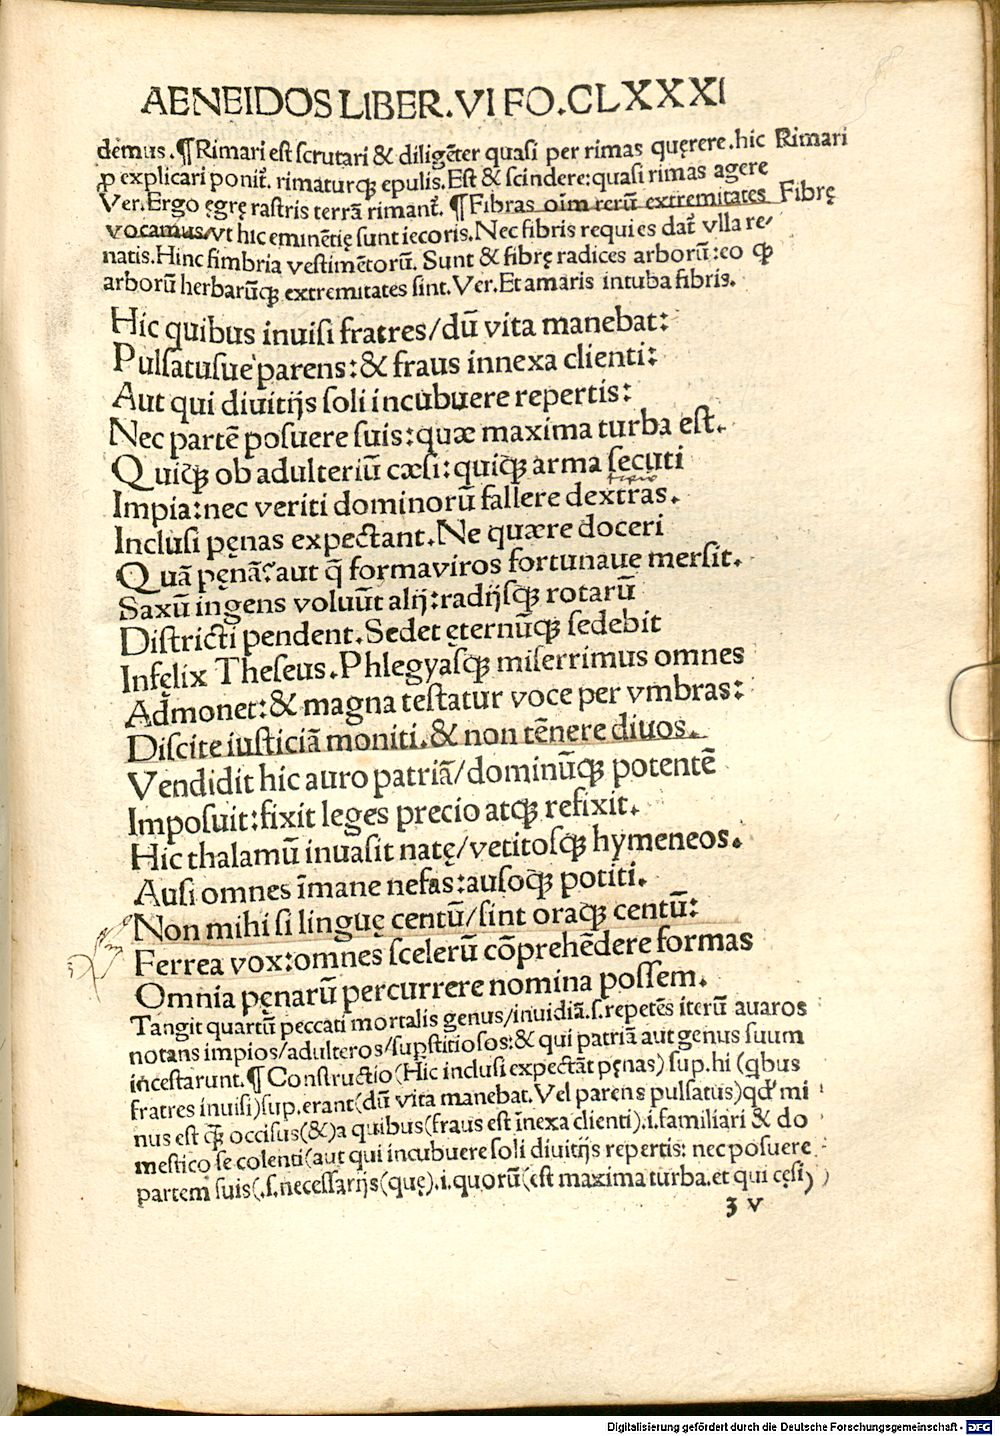 AENEIDOS LIBER. VI FO. CLXXXI
demus. ¶ Rimari est scrutari & diligẽter quasi per rimas quęrere. hic Rimari
ꝓ explicari ponit̃. rimaturqꝫ epulis. Est & scindere: quasi rimas agere
Ver. Ergo ęgrę rastris terrã rimant̃. ¶ Fibras oim rerũ extremitates Fibrę
vocamus/vt hic eminẽtię sunt iecoris. Nec fibris requies dat̃ vlla re/
natis. Hinc fimbria vestimẽtorũ. Sunt & fibrę radices arborũ: eo qꝫ
arborũ herbarũqꝫ extremitates sint. Ver. Et amaris intuba fibris.
Hic quibus inuisi fratres/dũ vita manebat:
Pulsatusue parens: & fraus innexa clienti:
Aut qui diuitijs soli incubuere repertis:
Nec partẽ posuere suis: quæ maxima turba est.
Quiqꝫ ob adulteriũ cæsi: quiqꝫ arma secuti
Impia: nec veriti dominorũ fallere dextras.
Inclusi pęnas expectant. Ne quære doceri
Quã pęnã? aut q̃ forma viros fortunaue mersit.
Saxũ ingens voluũt alij: radijsqꝫ rotarũ
Districti pendent. Sedet ęternũqꝫ sedebit
Infęlix Theseus. Phlegyasqꝫ miserrimus omnes
Admonet: & magna testatur voce per vmbras:
Discite iusticiã moniti. & non tẽnere diuos.
Vendidit hic auro patriã/dominũqꝫ potentẽ
Imposuit: fixit leges precio atqꝫ refixit.
Hic thalamũ inuasit natę/vetitosqꝫ hymeneos.
Ausi omnes ĩmane nefas: ausoqꝫ potiti.
Non mihi si linguę centũ/sint oraqꝫ centũ:
Ferrea vox: omnes scelerũ cõprehẽdere formas
Omnia pęnarũ percurrere nomina possem.
Tangit quartũ peccati mortalis genus/inuidiã. s. repetẽs iterũ auaros
notans impios/adulteros/sup̱stitiosos: & qui patriã aut genus suum
incestarunt. ¶ Constructio (Hic inclusi expectãt pęnas) sup. hi (qbus
fratres inuisi) sup. erant (dũ vita manebat. Vel parens pulsatus) qd̓ mi
nus est qꝫ̃ occisus (&) a quibus (fraus est ĩnexa clienti). i. familiari & do
mestico se colenti (aut qui incubuere soli diuitijs repertis: nec posuere
partem suis (. s. necessarijs (quę). i. quorũ (est maxima turba. et qui cęsi)
3 v
Digitalisierung gefördert durch die Deutsche Forschungsgemeinschaft - DFG